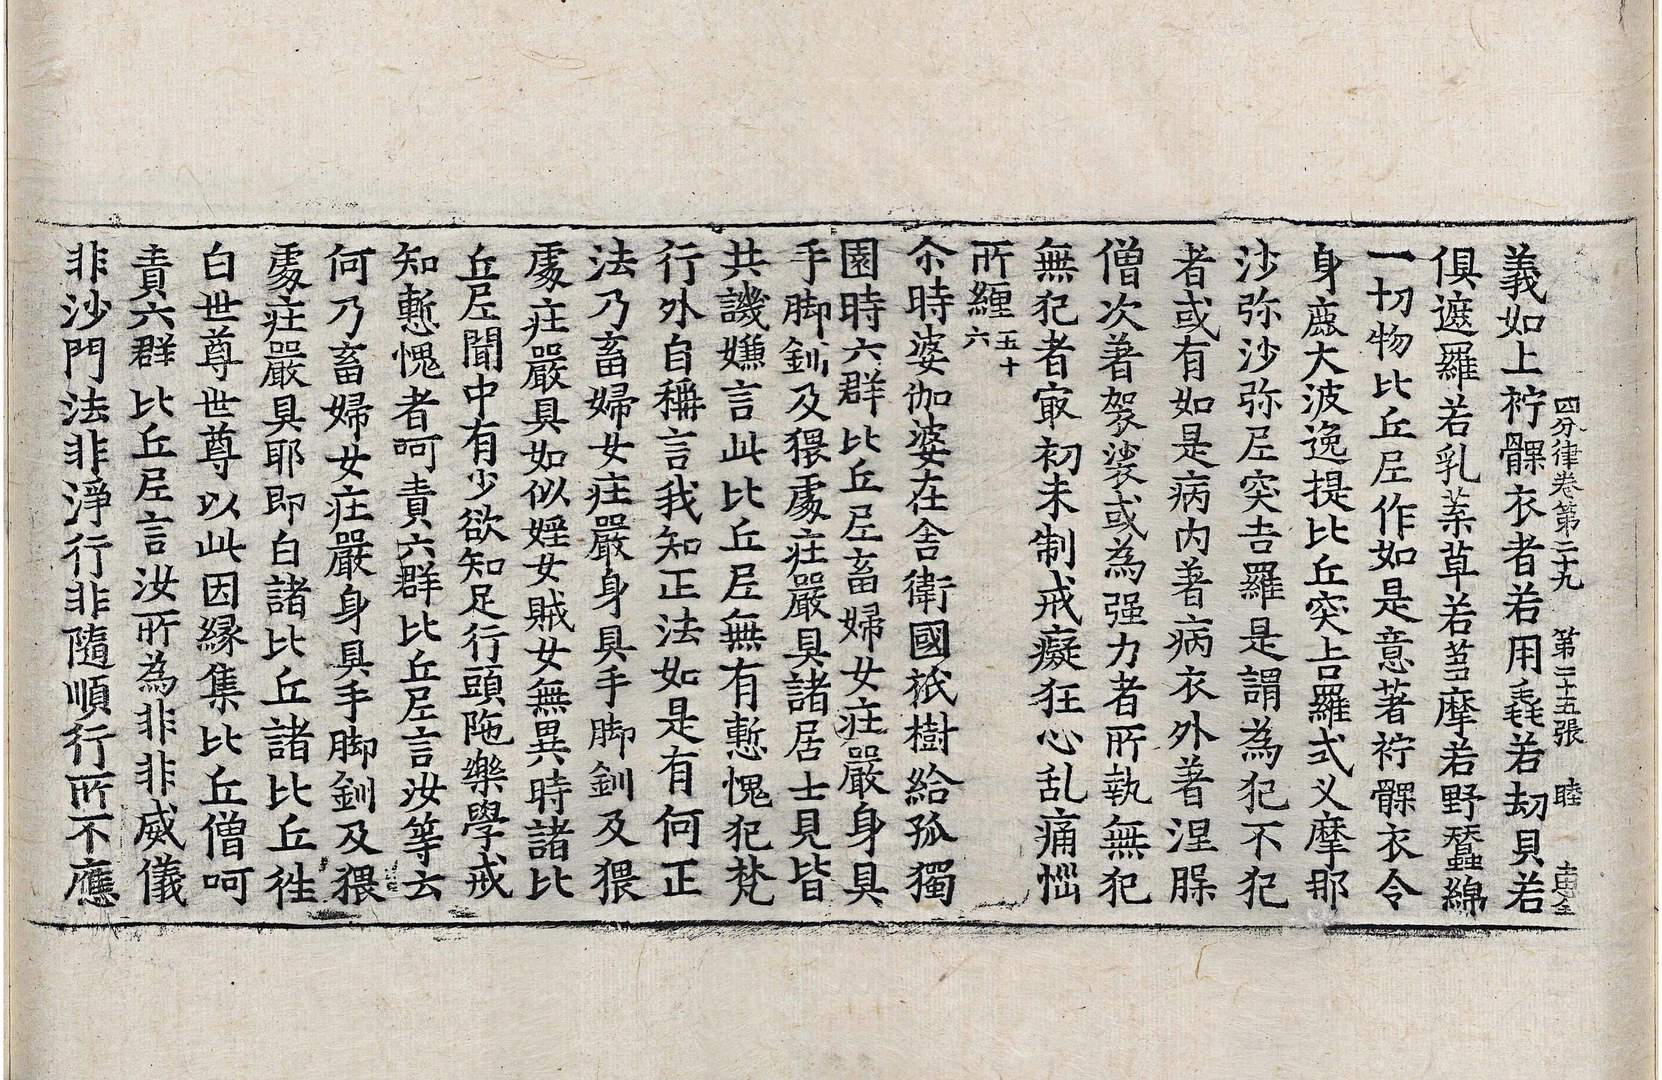 四分律卷第二十九 第二十五張 睦
義如上袴髁衣者若用毳若劫貝若
俱遮羅若乳葉草若芻摩若野蠶綿
一切物比丘尼作如是意著袴髁衣令
身麁大波逸提比丘突吉羅式叉摩那
沙弥沙弥尼突吉羅是謂為犯不犯
者或有如是病內著病衣外著涅髁
僧次著袈裟或為强力者所執無犯
無犯者㝡初未制戒癡狂心乱痛惱
所纏五十六
尒時婆伽婆在舍衛國祇樹給孤獨
園時六群比丘尼畜婦女庄嚴身具
手脚釧及猥處庄嚴具諸居士見皆
共譏嫌言此比丘尼無有慙愧犯梵
行外自稱言我知正法如是有何正
法乃畜婦女庄嚴身具手脚釧及猥
處庄嚴具如似婬女賊女無異時諸比
丘尼聞中有少欲知足行頭陁樂學戒
知慙愧者呵責六群比丘尼言汝等云
何乃畜婦女庄嚴身具手脚釧及猥
處庄嚴具耶即白諸比丘諸比丘徃
白世尊世尊以此因緣集比丘僧呵
責六群比丘尼言汝所為非非威儀
非沙門法非淨行非隨順行所不應